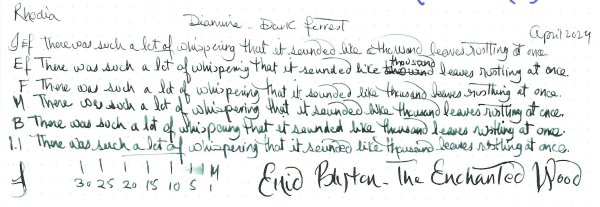 Rhodia
Diamine - Dark Forrest
April 2024
EF There was such a lot of whispering that it sounded like a thousand leaves rustling at once.
EF There was such a lot of whispering that it sounded like thousand leaves rustling at once.
F There was such a lot of whispering that it sounded like thousand leaves rustling at once.
M There was such a lot of whispering that it sounded like thousand leaves rustling at once.
B There was such a lot of whispering that it sounded like thousand leaves rustling at once.
1.1 There was such a lot of whispering that it sounded like thousand leaves rustling at once.
30 25 20 15 10 5 1 M
Enid Blyton - The Enchanted Wood